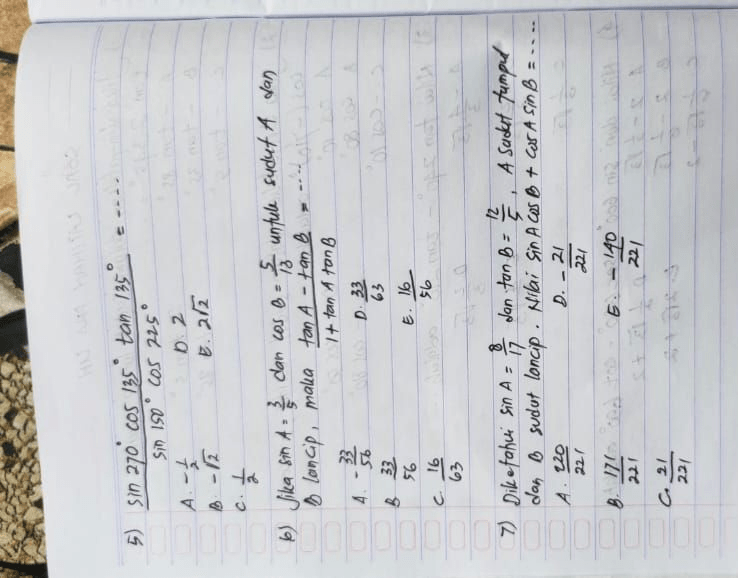 5) sin 270° cos 135° tan 135° = ....
sin 150° cos 225°
A. -1/2 D. 2
B. -√2 E. 2√2
C. 1/2
6) Jika sin A = 3/5 dan cos B = 5/13 untuk sudut A dan
B lancip, maka tan A - tan B = ....
1 + tan A tan B
A. -33/56 D. 33/63
B 33/56 E. 16/56
C. 16/63
7) Diketahui sin A = 8/17 dan tan B = 12/5, A sudut tumpul
dan B sudut lancip. Nilai sin A cos B + cos A sin B = ....
A. 220/221 D. -21/221
B. 171/221 E. -140/221
C. 21/221